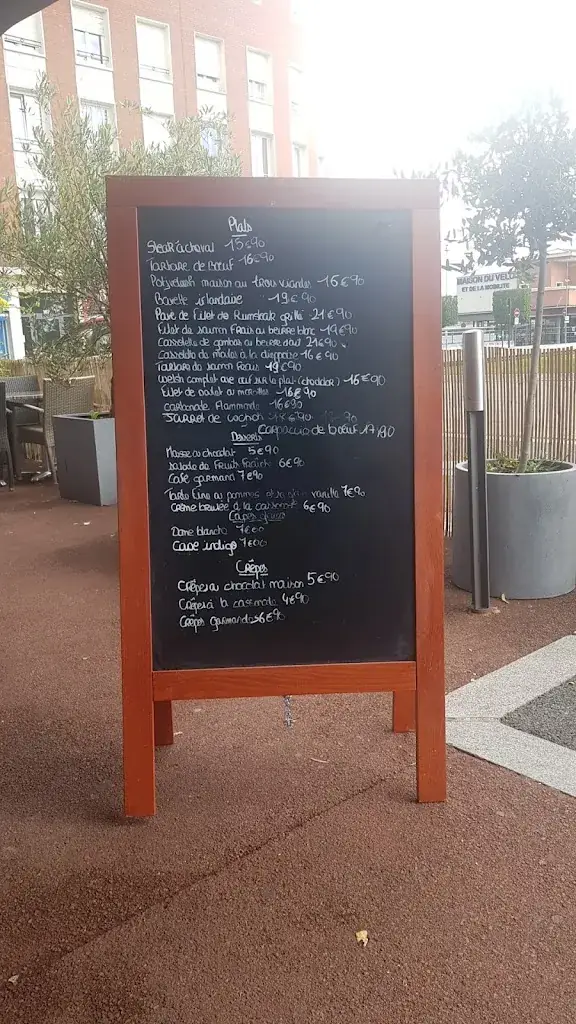 Plats
Steak à cheval 15€90
Tartare de Boeuf 16€90
Potjevleesh maison au trois viandes 16€90
Bavette islandaise 19€90
Pavé de Filet de Rumsteak grillé 21€90
Filet de saumon Frais au beurre blanc 19€90
Cassolette de gambas au beurre d'ail 21€90
cassolette de moules à la dieppoise 16€90
Tartare de saumon Frais 19€90
welsh complet avec œuf sur le plat (cheddar) 16€90
Filet de poulet au maroilles 16€90
carbonade Flammande 16€90
Jarret de cochon
Carpaccio de boeuf 17,90
Desserts
Mousse au chocolat 5€90
salade de Fruits Fraîche 6€90
Café gourmand 7€90
Tarte Fine au pommes vanille 7€90
Crème brulée à la cassonade 6€90
Coupes glacées
Dame blanche 7€00
Cave indigo 7€00
Crêpes
Crêpes au chocolat maison 5€90
Crêpes à la cassonade 4€90
Crêpes gourmandes 6€90
MAISON DU VELO
ET DE LA MOBILITE